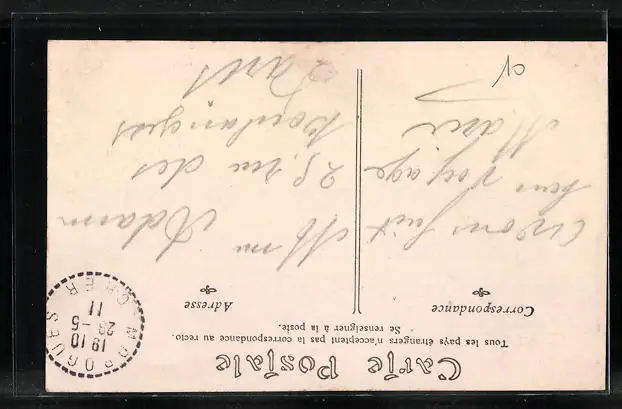 Carte Postale
Tous les pays étrangers n'acceptent pas la correspondance au recto.
Se renseigner à la poste.
Correspondance
Adresse
Avons fait
bon voyage
Marie
Mme Adam
25, rue des
Boulangers
Paris
MOROGUES
19 10
23-5
11
CHER